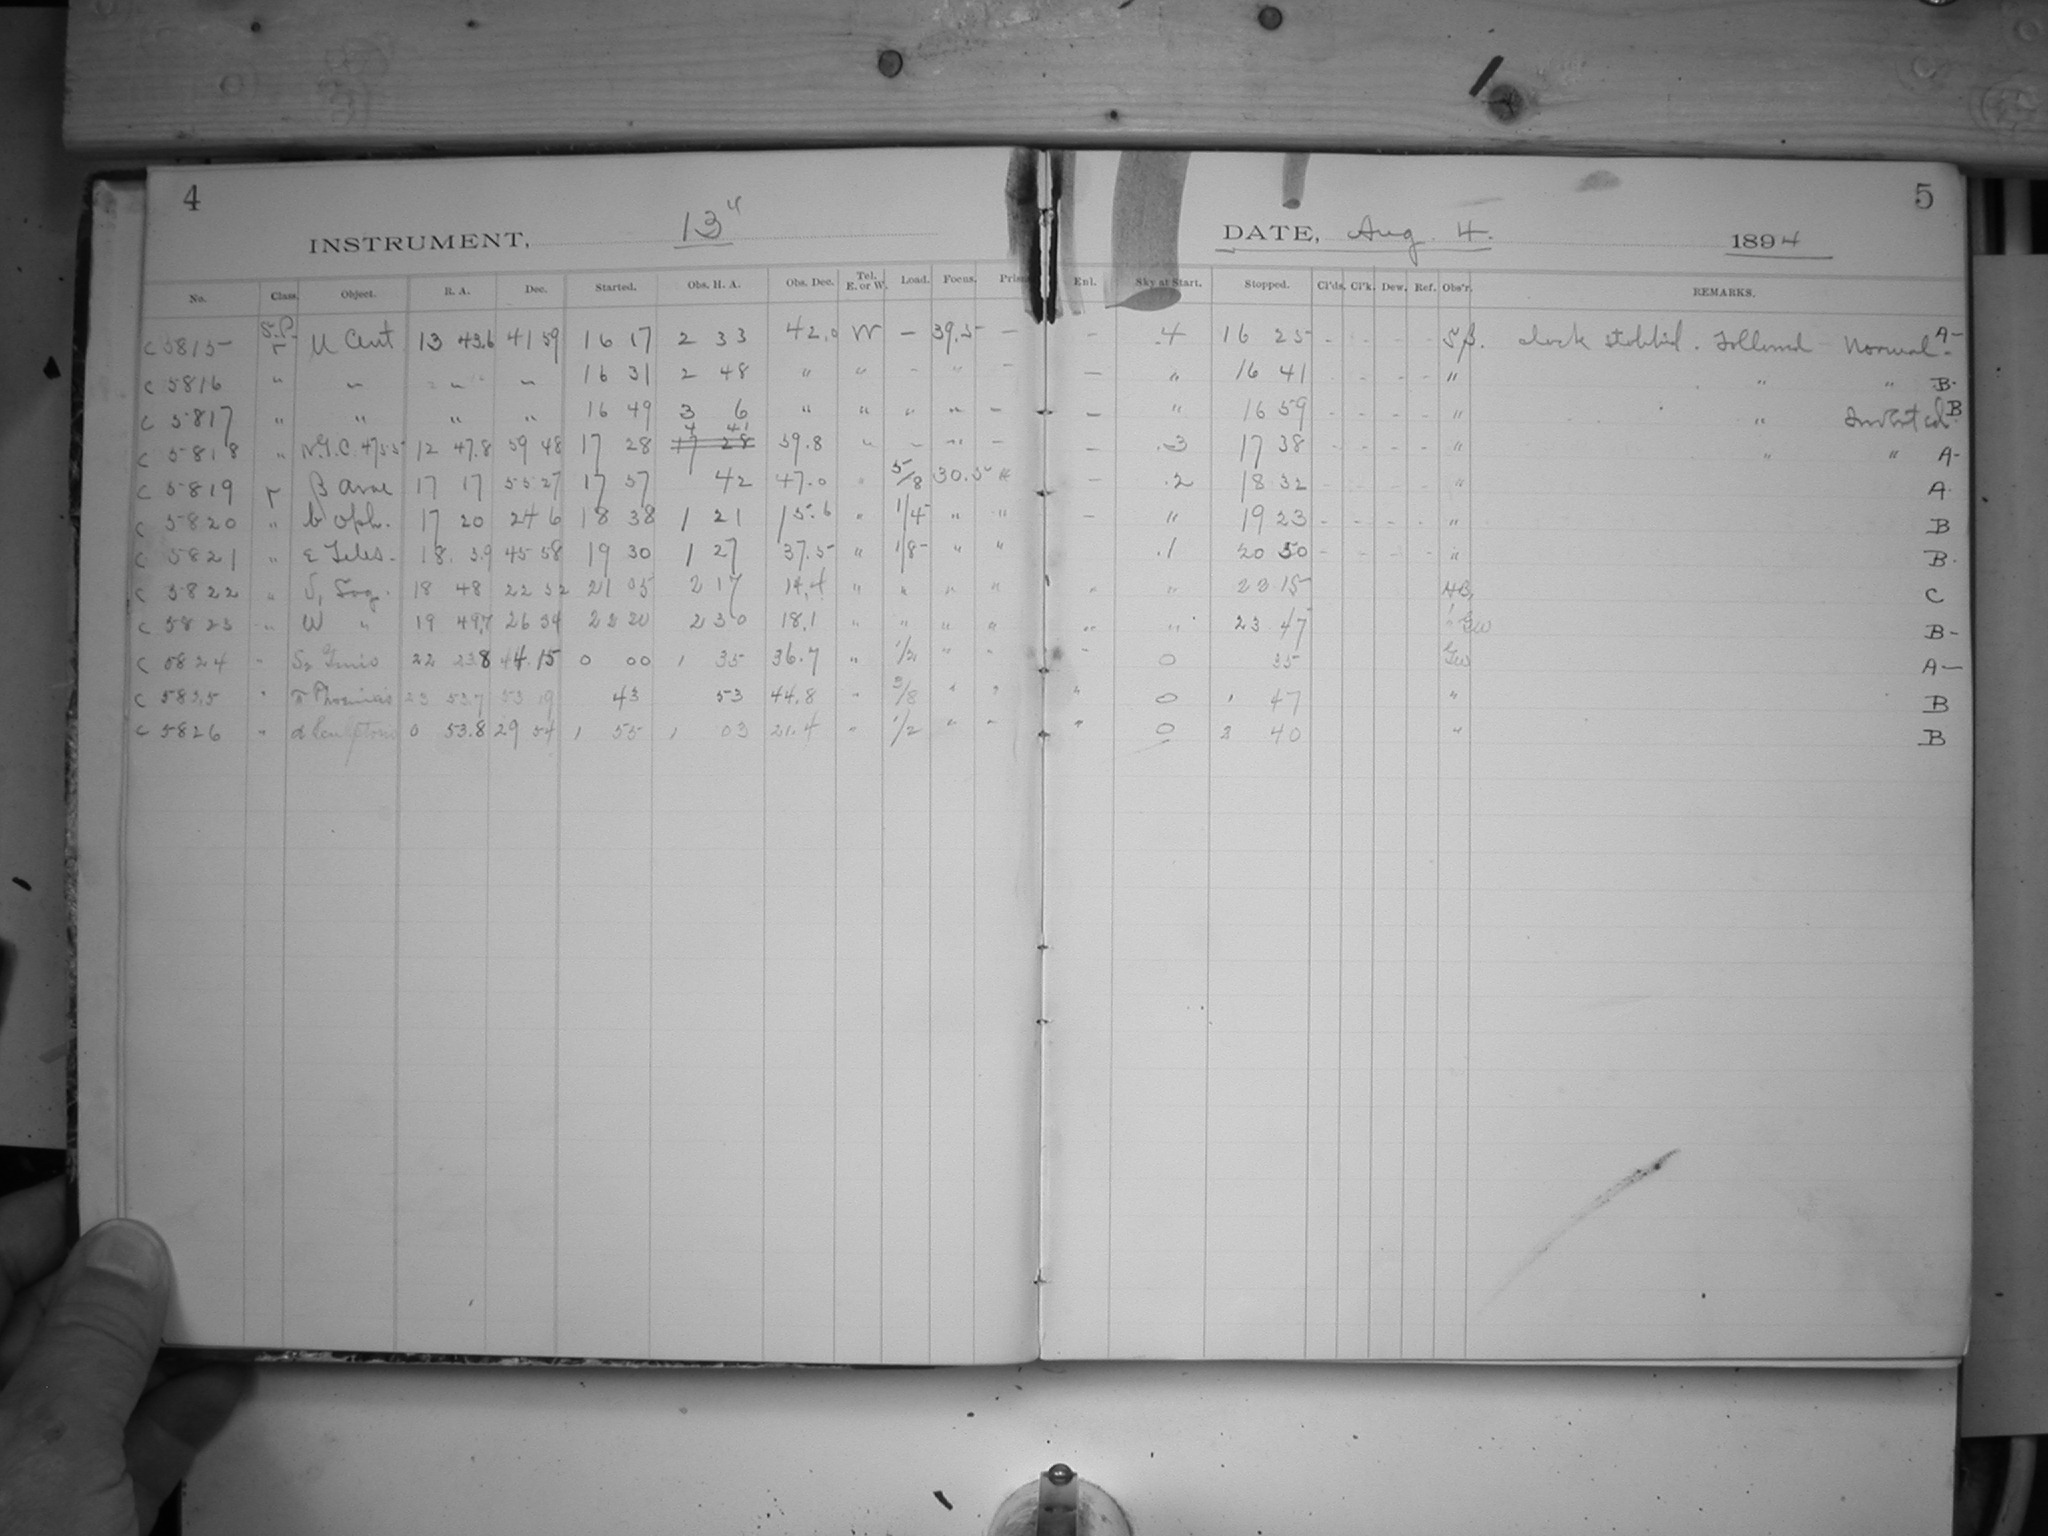 4
5
INSTRUMENT, 13"
DATE, Aug. 4. 1894
No. Class. Object. R. A. Dec. Started. Obs. H. A. Obs. Dec. Tel. E. or W. Load. Focus. Enl. Sky at Start. Stopped. Cl'ds. Cl'k. Dew. Ref. Obs'r. REMARKS.
C 5815 S.P. r u Cent. 13 43.6 41 59 16 17 2 33 42.0 W – 39.5 – – .4 16 25 - - - - Sβ. clock stopped. Followed Normal. A-
C 5816 " " " " 16 31 2 48 " " - " - – " 16 41 - - - - " " " B-
C 5817 " " " " 16 49 3 6 " " " " – – " 16 59 - - - - " " Inverted. B
C 5818 " N.G.C. 4755 12 47.8 59 48 17 28 4 41 59.8 " - " – – .3 17 38 - - - - " " " A-
C 5819 r β Arae 17 17 55 27 17 57 42 47.0 " 5/8 30.5 " – .2 18 32 " A
C 5820 " b Oph. 17 20 24 6 18 38 1 21 15.6 " 1/4 " " – " 19 23 - - - - " B
C 5821 " ε Teles. 18. 3.9 45 58 19 30 1 27 37.5 " 1/8 " " .1 20 50 - - - - " B-
C 5822 " Sag. 18 48 22 52 21 05 2 17 14.4 " " " " " " 22 15 HB, C
C 5823 " W " 19 49.7 26 34 22 20 2 30 18.1 " " " " " " 23 47 " GW B-
C 5824 " Gruis 22 23.8 44.15 0 00 1 35 36.7 " 1/2 " " " 0 35 GW A-
C 5825 " π Phoenicis 23 53.7 53 19 43 53 44.8 " 3/8 " " " 0 1 47 " B
C 5826 " α Sculptoris 0 53.8 29 54 1 55 1 03 21.4 " 1/2 " " " 0 2 40 " B